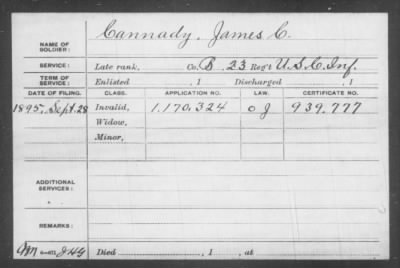 Cannady, James C.
NAME OF SOLDIER:
SERVICE: Late rank, Co. B. 23 Reg't U.S.C. Inf.
TERM OF SERVICE: Enlisted , 1 Discharged , 1
DATE OF FILING. CLASS. APPLICATION NO. LAW. CERTIFICATE NO.
1895, Sept. 28 Invalid, 1.170.324 939.777
Widow,
Minor,
ADDITIONAL SERVICES:
REMARKS:
Died , 1 , at